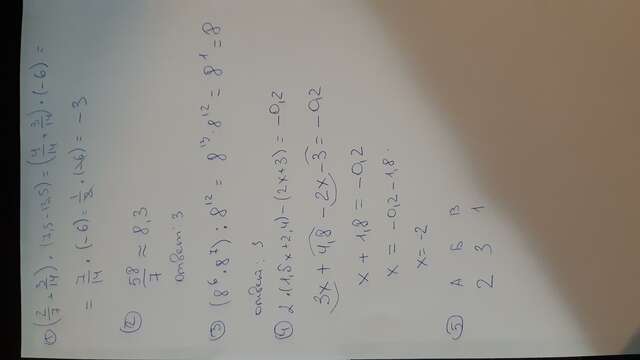 ① (2/7 + 3/14) · (7,5 - 13,5) = (4/14 + 3/14) · (-6) =
= 7/14 · (-6) = 1/2 · (-6) = -3
② 58/7 ≈ 8,3
ответ: 3
③ (8⁶ · 8⁷) : 8¹² = 8¹³ : 8¹² = 8¹ = 8
ответ: 3
④ 2 · (1,5x + 2,4) - (2x + 3) = -0,2
3x + 4,8 - 2x - 3 = -0,2
x + 1,8 = -0,2
x = -0,2 - 1,8.
x = -2
⑤ А Б В
2 3 1